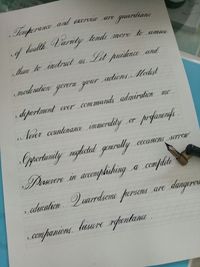 Temperance and exercise are guardians
of health Variety tends more to amuse
than to instruct us Let prudence and
moderation govern your actions Modest
deportment ever commands admiration
Never countenance immorality or profaneness
Opportunity neglected generally occasions sorrow
Persevere in accomplishing a complete
education Quarrelsome persons are dangerous
companions. Leisure repentance